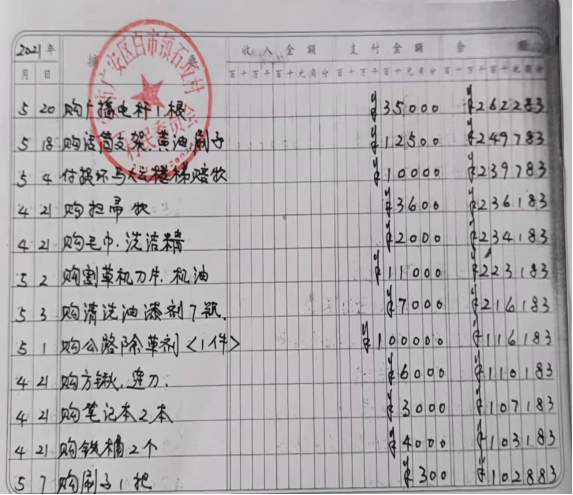 2021年 摘要 收入金额 支付金额 余额
月 日 百十万千百十元角分 百十万千百十元角分 百十万千百十元角分
5 20 购广播电杆1根 ¥35000 ¥262283
5 18 购话筒支架、黄油刷子 ¥12500 ¥249783
5 4 付损坏 楼梯赔收 ¥10000 ¥239783
4 21 购扫帚收 ¥3600 ¥236183
4 21 购毛巾、洗洁精 ¥2000 ¥234183
5 2 购割草机刀片、机油 ¥11000 ¥223183
5 3 购清洗油漆剂7瓶. ¥7000 ¥216183
5 1 购公路除草剂<1件> ¥100000 ¥116183
4 21 购方锹、 刀. ¥6000 ¥110183
4 21 购笔记本2本 ¥3000 ¥107183
4 21 购铁桶2个 ¥4000 ¥103183
5 7 购刷子1把 ¥300 ¥102883
市广安区白市镇石 村
村民委员会